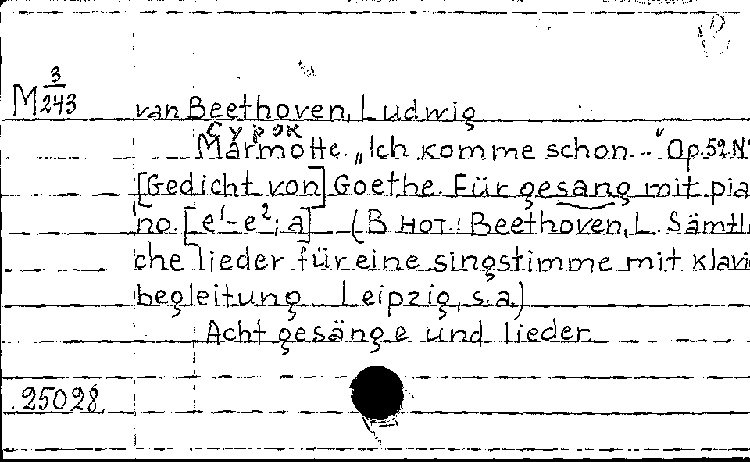 M 3/243
van Beethoven, Ludwig
Сурок
Marmotte. „Ich komme schon..." Op.52.N
[Gedicht von] Goethe. Für gesang mit pia
no. [e¹-e²; a] (В нот.: Beethoven, L. Sämtli
che lieder für eine singstimme mit klavi
begleitung Leipzig, s.a.)
Acht gesänge und lieder
25028